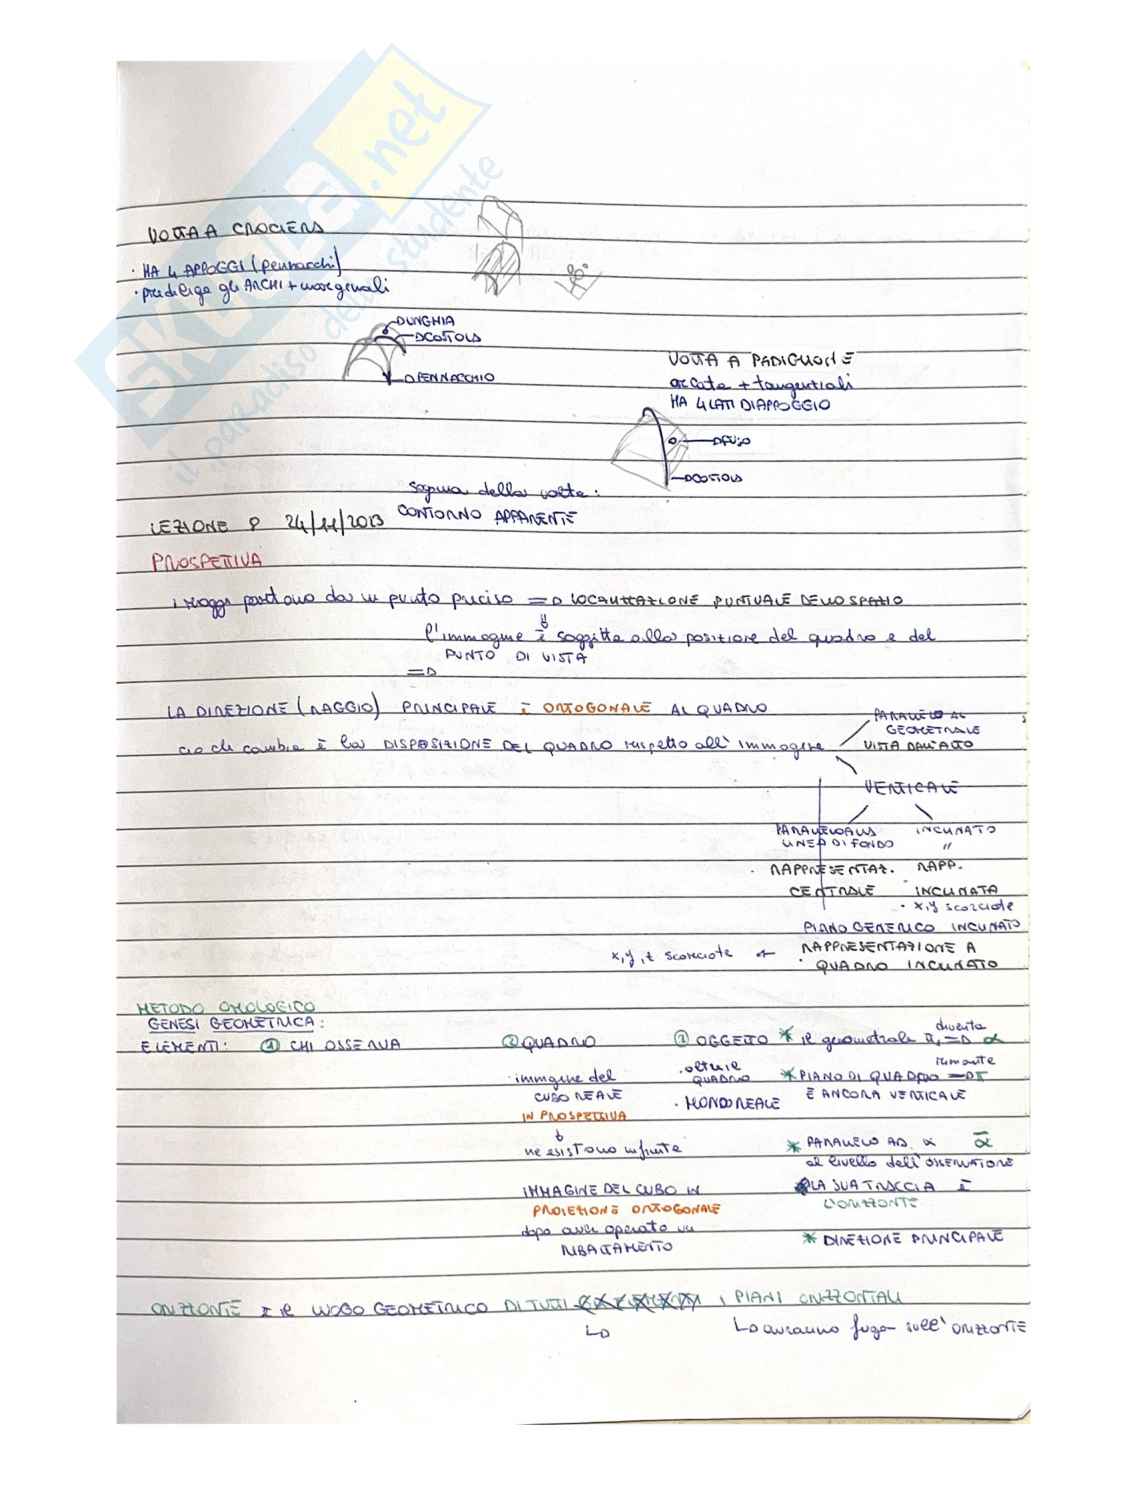 SKUOLA.net
il paradiso dello studente
VOLTA A CROCIERA
· HA 4 APPOGGI (pennacchi)
· predilige gli ARCHI + marginali
UNGHIA
COSTOLA
PENNACCHIO
90°
VOLTA A PADIGLIONE
arcate + tangenziali
HA 4 LATI DI APPOGGIO
FUSO
COSTOLA
sagoma della volta:
CONTORNO APPARENTE
LEZIONE 8 24/11/2013
PROSPETTIVA
i raggi partono da un punto preciso => LOCALIZZAZIONE PUNTUALE DELLO SPAZIO
l'immagine è soggetta alla posizione del quadro e del
PUNTO DI VISTA
=>
LA DIREZIONE (RAGGIO) PRINCIPALE È ORTOGONALE AL QUADRO
ciò che cambia è la DISPOSIZIONE DEL QUADRO rispetto all'immagine
PARALLELO AL
GEOMETRALE
VISTA DALL'ALTO
VERTICALE
PARALLELO ALLA
LINEA DI FONDO
INCLINATO
"
· RAPPRESENTAZ.
CENTRALE
RAPP.
INCLINATA
· x,y scorciate
PIANO GENERICO INCLINATO
RAPPRESENTAZIONE A
· QUADRO INCLINATO
x,y,z scorciate ←
METODO OMOLOGICO
GENESI GEOMETRICA:
ELEMENTI: ① CHI OSSERVA
② QUADRO
immagine del
CUBO REALE
IN PROSPETTIVA
↓
ne esistono infinite
IMMAGINE DEL CUBO IN
PROIEZIONE ORTOGONALE
dopo aver operato un
RIBALTAMENTO
OGGETTO
· oltre il
QUADRO
· MONDO REALE
* il geometrale π₁ diventa => α
* PIANO DI QUADRO rimane => π
E ANCORA VERTICALE
* PARALLELO AD α ᾱ
al livello dell'OSSERVATORE
* LA SUA TRACCIA È
L'ORIZZONTE
* DIREZIONE PRINCIPALE
ORIZZONTE È IL LUOGO GEOMETRICO DI TUTTI I PIANI ORIZZONTALI
↳
↳ avranno fuga sull'ORIZZONTE